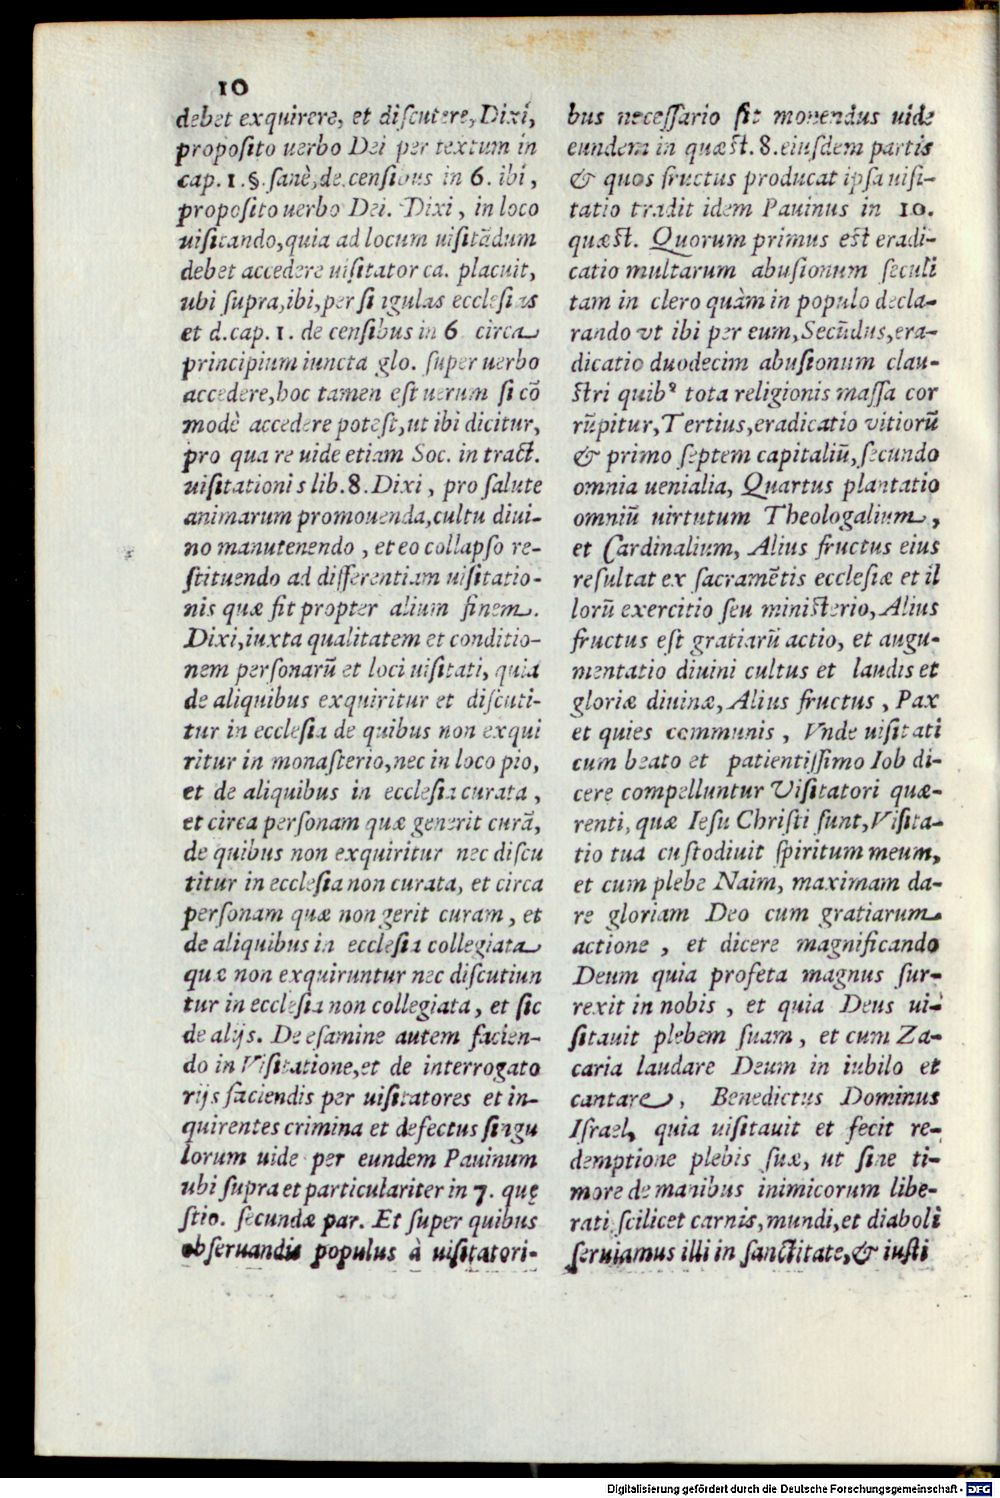 10
debet exquirere, et discutere, Dixi,
proposito uerbo Dei per textum in
cap. 1. §. sanè, de censibus in 6. ibi,
proposito uerbo Dei. Dixi, in loco
uisitando, quia ad locum uisitādum
debet accedere uisitator ca. placuit,
ubi supra, ibi, per si igulas ecclesias
et d. cap. 1. de censibus in 6 circa
principium iuncta glo. super uerbo
accedere, hoc tamen est uerum si cō
modè accedere potest, ut ibi dicitur,
pro qua re uide etiam Soc. in tract.
uisitationis lib. 8. Dixi, pro salute
animarum promouenda, cultu diui-
no manutenendo, et eo collapso re-
stituendo ad differentiam uisitatio-
nis quæ fit propter alium finem.
Dixi, iuxta qualitatem et conditio-
nem personarū et loci uisitati, quia
de aliquibus exquiritur et discuti-
tur in ecclesia de quibus non exqui
ritur in monasterio, nec in loco pio,
et de aliquibus in ecclesia curata,
et circa personam quæ generit curā,
de quibus non exquiritur nec discu
titur in ecclesia non curata, et circa
personam quæ non gerit curam, et
de aliquibus in ecclesia collegiata
quæ non exquiruntur nec discutiun
tur in ecclesia non collegiata, et sic
de alijs. De esamine autem facien-
do in Visitatione, et de interrogato
rijs faciendis per uisitatores et in-
quirentes crimina et defectus singu
lorum uide per eundem Pauinum
ubi supra et particulariter in 7. quę
stio. secundæ par. Et super quibus
obseruandis populus à uisitatori-
bus necessario sit monendus uide
eundem in quæst. 8. eiusdem partis
& quos fructus producat ipsa uisi-
tatio tradit idem Pauinus in 10.
quæst. Quorum primus est eradi-
catio multarum abusionum seculi
tam in clero quàm in populo decla-
rando vt ibi per eum, Secūdus, era-
dicatio duodecim abusionum clau-
stri quibꝰ tota religionis massa cor
rūpitur, Tertius, eradicatio vitiorū
& primo septem capitaliū, secundo
omnia uenialia, Quartus plantatio
omniū uirtutum Theologalium,
et Cardinalium, Alius fructus eius
resultat ex sacramētis ecclesiæ et il
lorū exercitio seu ministerio, Alius
fructus est gratiarū actio, et augu-
mentatio diuini cultus et laudis et
gloriæ diuinæ, Alius fructus, Pax
et quies communis, Vnde uisitati
cum beato et patientissimo Iob di-
cere compelluntur Visitatori quæ-
renti, quæ Iesu Christi sunt, Visita-
tio tua custodiuit spiritum meum,
et cum plebe Naim, maximam da-
re gloriam Deo cum gratiarum
actione, et dicere magnificando
Deum quia profeta magnus sur-
rexit in nobis, et quia Deus ui-
sitauit plebem suam, et cum Za-
caria laudare Deum in iubilo et
cantare, Benedictus Dominus
Israel, quia uisitauit et fecit re-
demptione plebis suæ, ut sine ti-
more de manibus inimicorum libe-
rati, scilicet carnis, mundi, et diaboli
seruiamus illi in sanctitate, & iusti
Digitalisierung gefördert durch die Deutsche Forschungsgemeinschaft - DFG